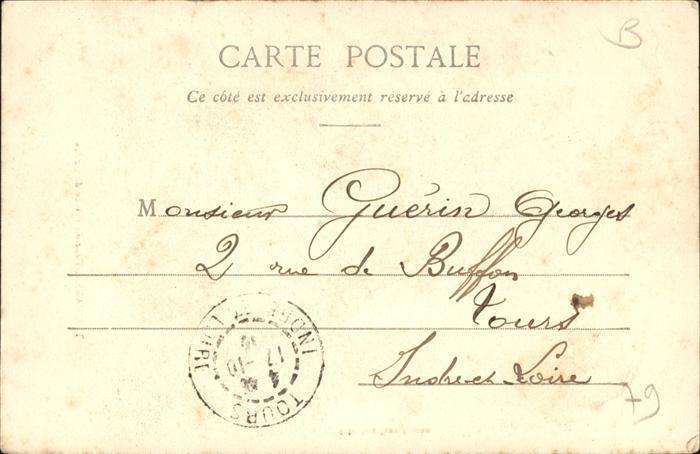 B
CARTE POSTALE
Ce côté est exclusivement réservé à l'adresse
Monsieur Guérin Georges
2 rue de Buffon
Tours
Indre-et-Loire
79
TOURS
INDRE-ET-LOIRE